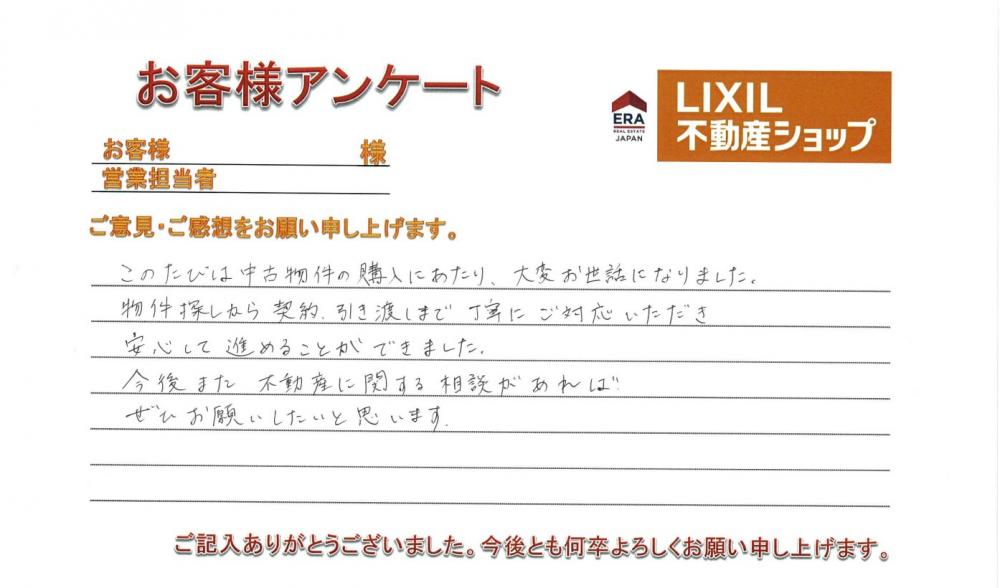 お客様アンケート
ERA
REAL ESTATE
JAPAN
LIXIL
不動産ショップ
お客様 様
営業担当者
ご意見・ご感想をお願い申し上げます。
このたびは中古物件の購入にあたり、大変お世話になりました。
物件探しから契約、引き渡しまで丁寧にご対応いただき
安心して進めることができました。
今後また不動産に関する相談があれば
ぜひお願いしたいと思います。
ご記入ありがとうございました。今後とも何卒よろしくお願い申し上げます。